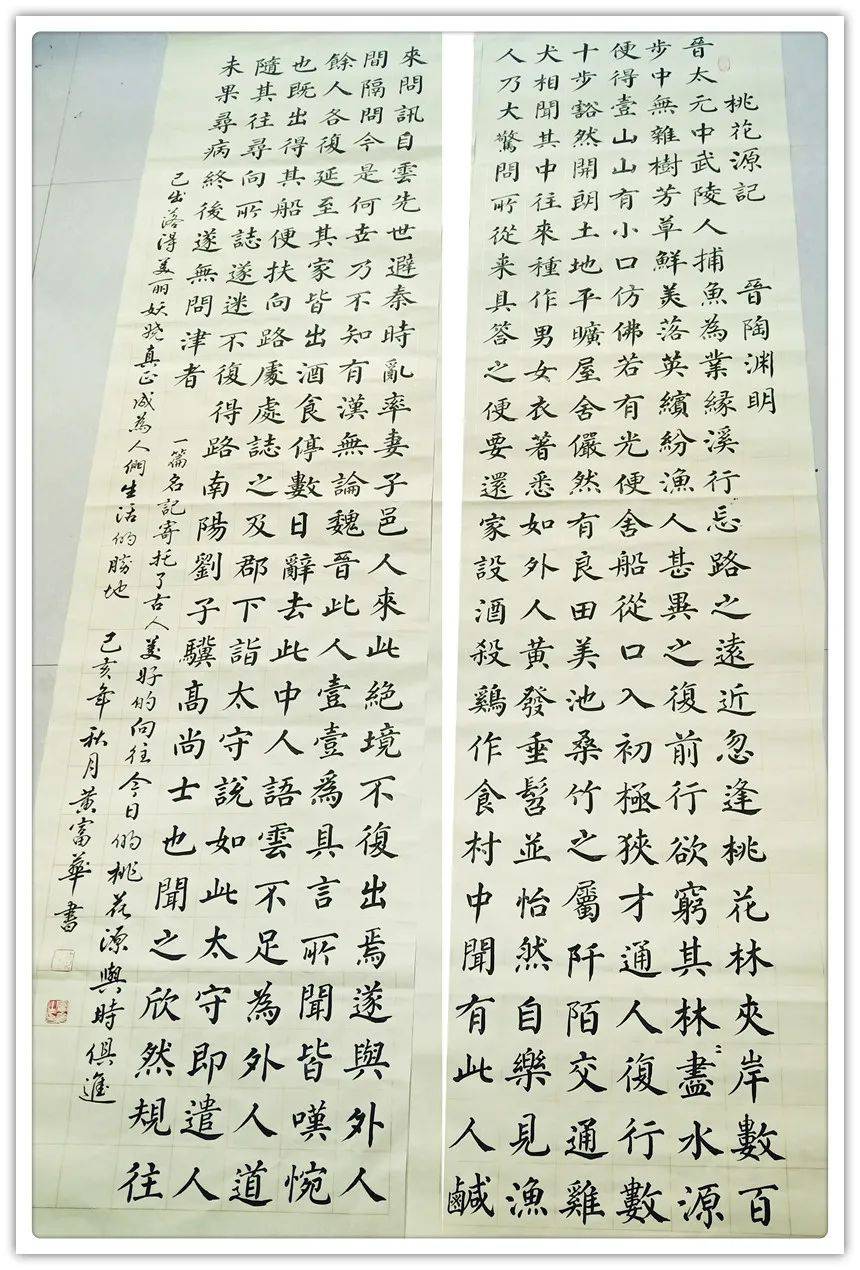 桃花源記 晉陶渊明
晉太元中武陵人捕魚為業緣溪行忘路之遠近忽逢桃花林夾岸數百
步中無雜樹芳草鮮美落英繽紛漁人甚異之復前行欲窮其林〻盡水源
便得壹山山有小口仿佛若有光便舍船從口入初極狹才通人復行數
十步豁然開朗土地平曠屋舍儼然有良田美池桑竹之屬阡陌交通雞
犬相聞其中往來種作男女衣著悉如外人黃發垂髫並怡然自樂見漁
人乃大驚問所從来具答之便要還家設酒殺鷄作食村中聞有此人鹹
來問訊自雲先世避秦時亂率妻子邑人來此絕境不復出焉遂與外人
間隔問今是何世乃不知有漢無論魏晉此人壹壹爲具言所聞皆嘆惋
餘人各復延至其家皆出酒食停數日辭去此中人語雲不足為外人道
也既出得其船便扶向路處處誌之及郡下詣太守說如此太守即遣人
隨其往尋向所誌遂迷不復得路南陽劉子驥高尚士也聞之欣然規往
未果尋病終後遂無問津者 一篇名記寄托了古人美好的向往今日的桃花源與時俱進
已出落得美丽妖娆真正成為人們生活的勝地 己亥年秋月黄富華書